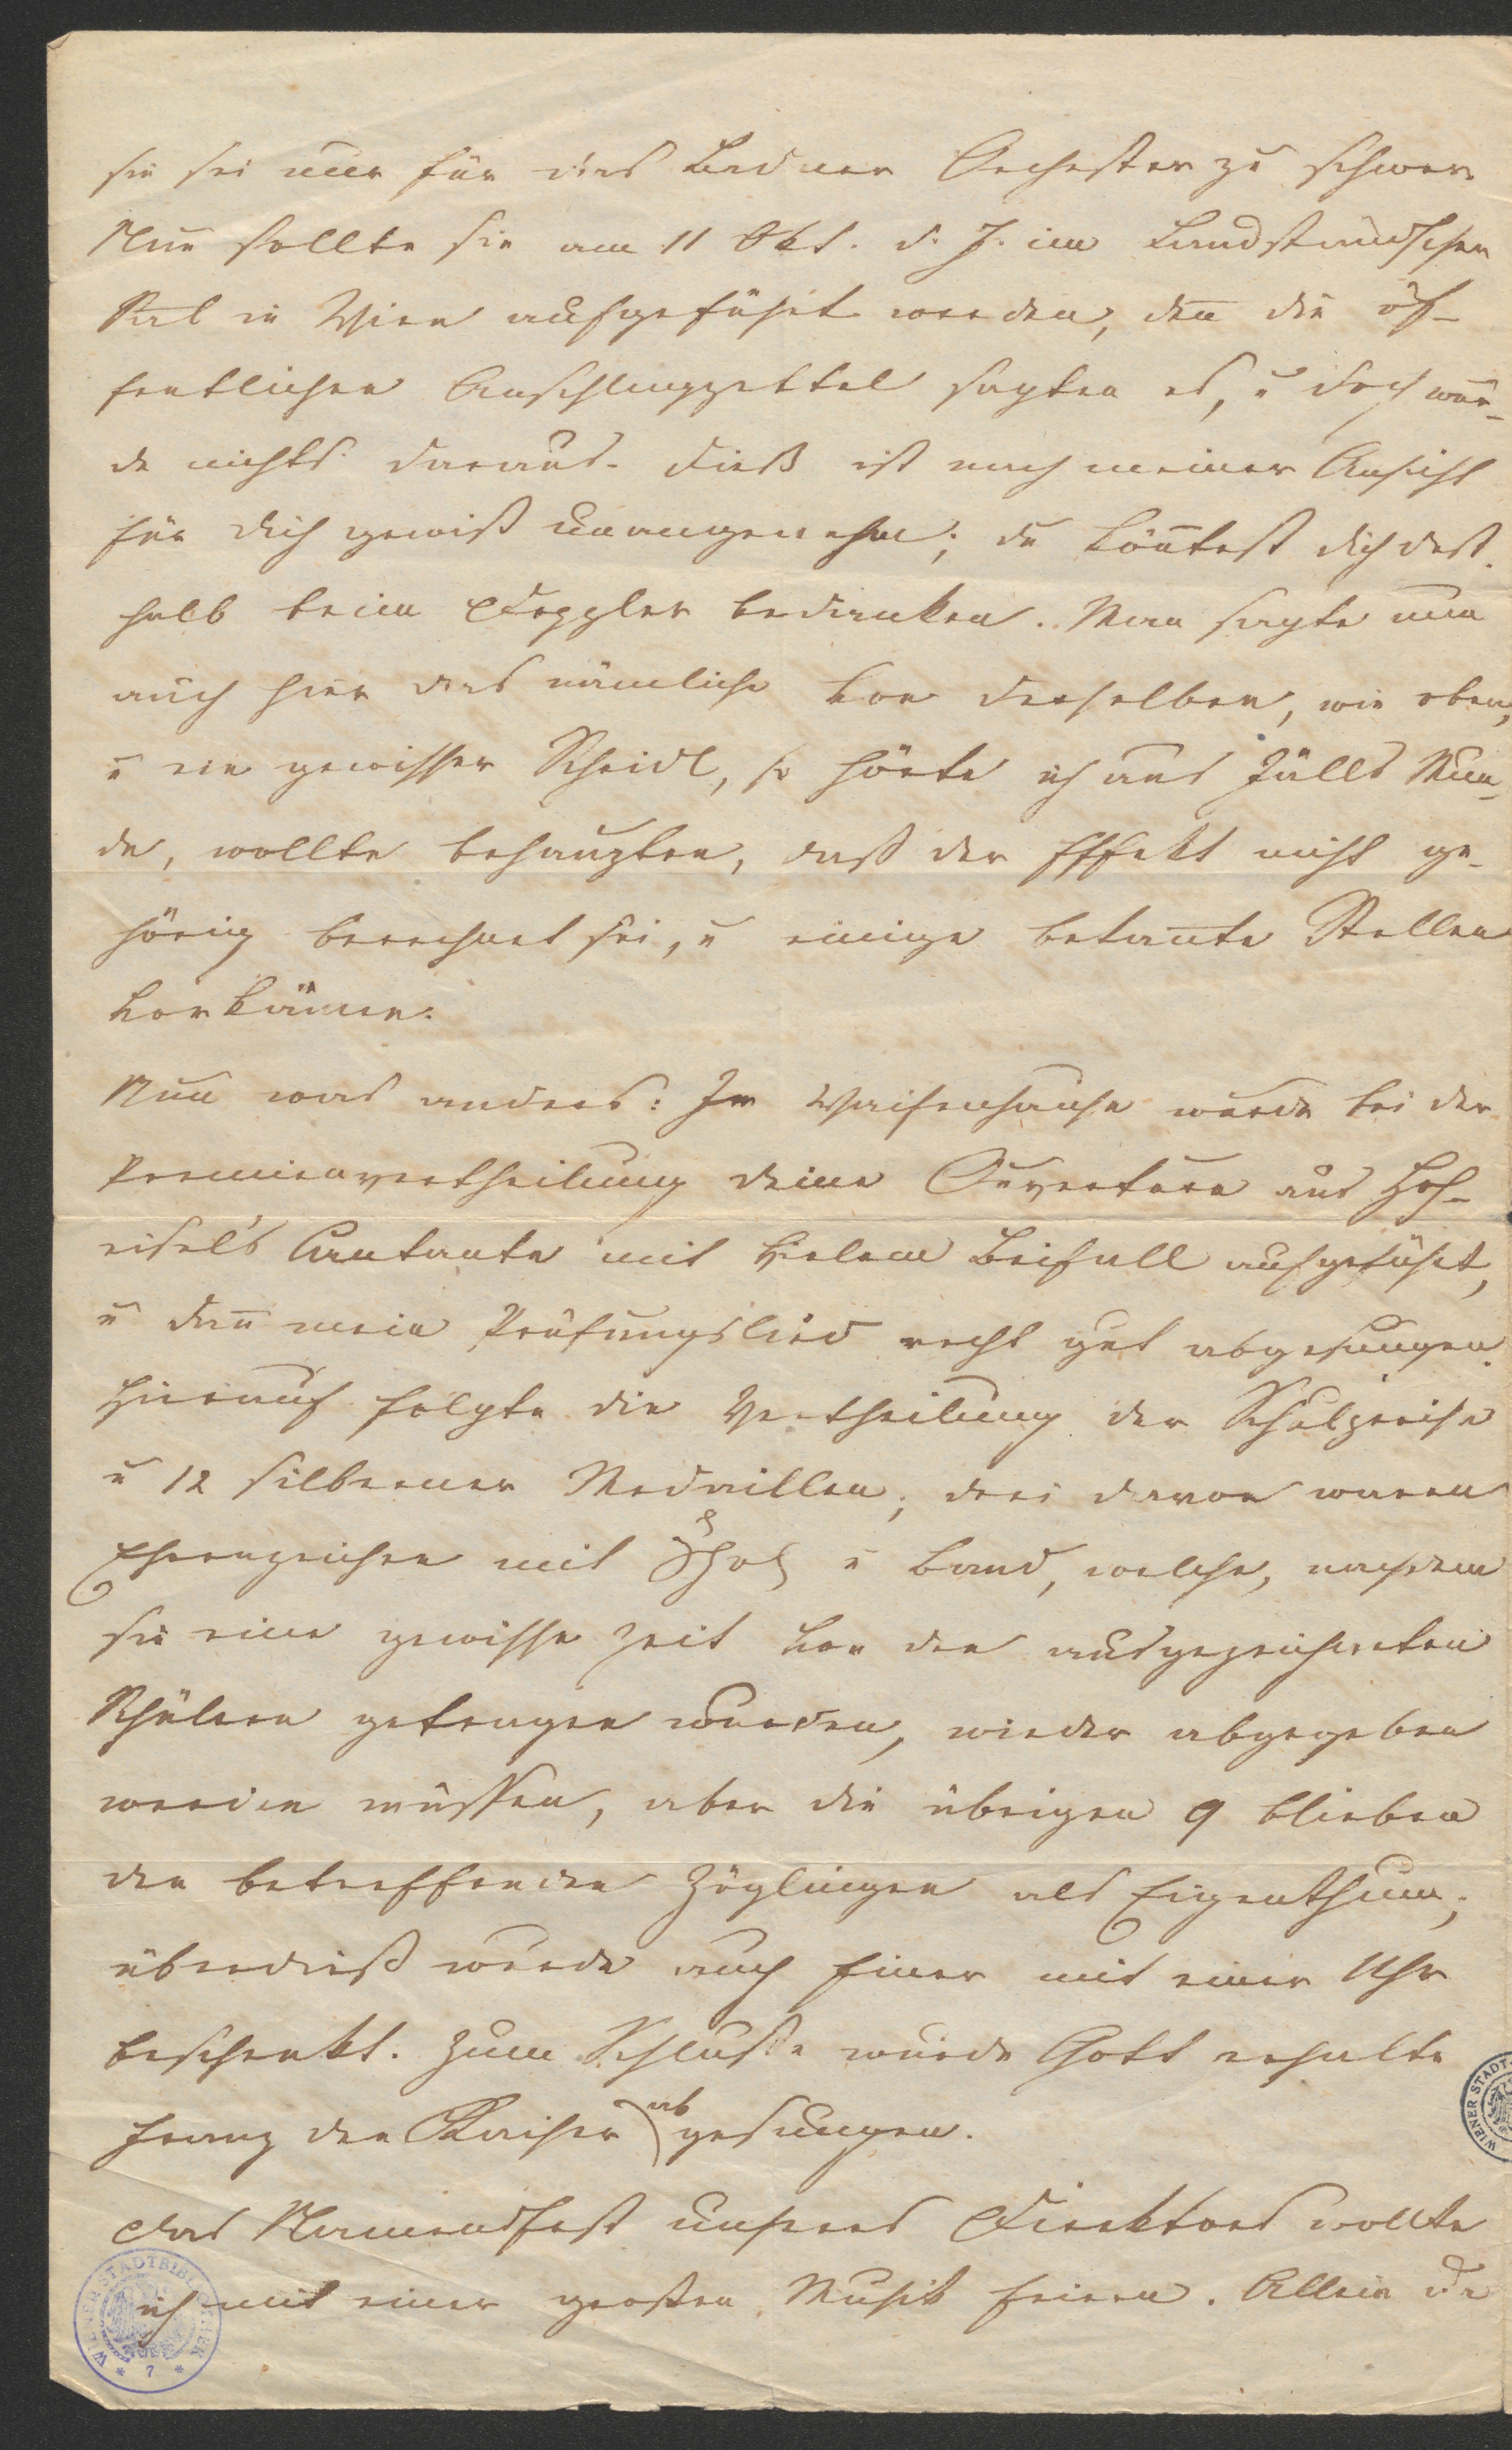 sie sei nur für das Badner Orchester zu schwer.
Nun sollte sie am 11 Okt. d. J. im Landständischen
Sal in Wien aufgeführt werden, den̄ die öf-
fentlichen Anschlagzettel sagten es, u doch wur-
de nichts daraus. Dieß ist nach meiner Ansicht
für dich gewiß unangenehm; du kön̄test dich deß-
halb beim Doppler bedanken. Man sagte nun
auch hier das nämliche von derselben, wie oben,
u ein gewisser Scheidl, so hörte ich aus Zülls Mun-
de, wollte behaupten, daß der Effekt nicht ge-
hörig berechnet sei, u einige bekan̄te Stellen
vorkämen.
Nun was anders: Im Waisenhause wurde bei der
Premienvertheilung deine Ouverture aus Hoh-
eisel's Cantante mit vielem Beifall aufgeführt,
u dan̄ mein Prüfungslied recht gut abgesungen.
Hierauf folgte die Vertheilung der Schulpreise
u 12 silberner Medaillen; drei davon waren
Ehrenzeichen mit u Band, welche, nachdem
sie eine gewisse Zeit von den ausgezeichneten
Schülern getragen wurden, wieder abgegeben
werden müssen, aber die übrigen 9 blieben
den betreffenden Zöglingen als Eigenthum;
überdieß wurde auch Einer mit einer Uhr
beschenkt. Zum Schluße wurde Gott erhalte
Franz den Kaiser abgesungen.
Das Namensfest unseres Direktors wollte
ich mit einer großen Musik feiern. Allein da
WIENER STADT-
WIENER STADTBIBLIOTHEK * 7 *